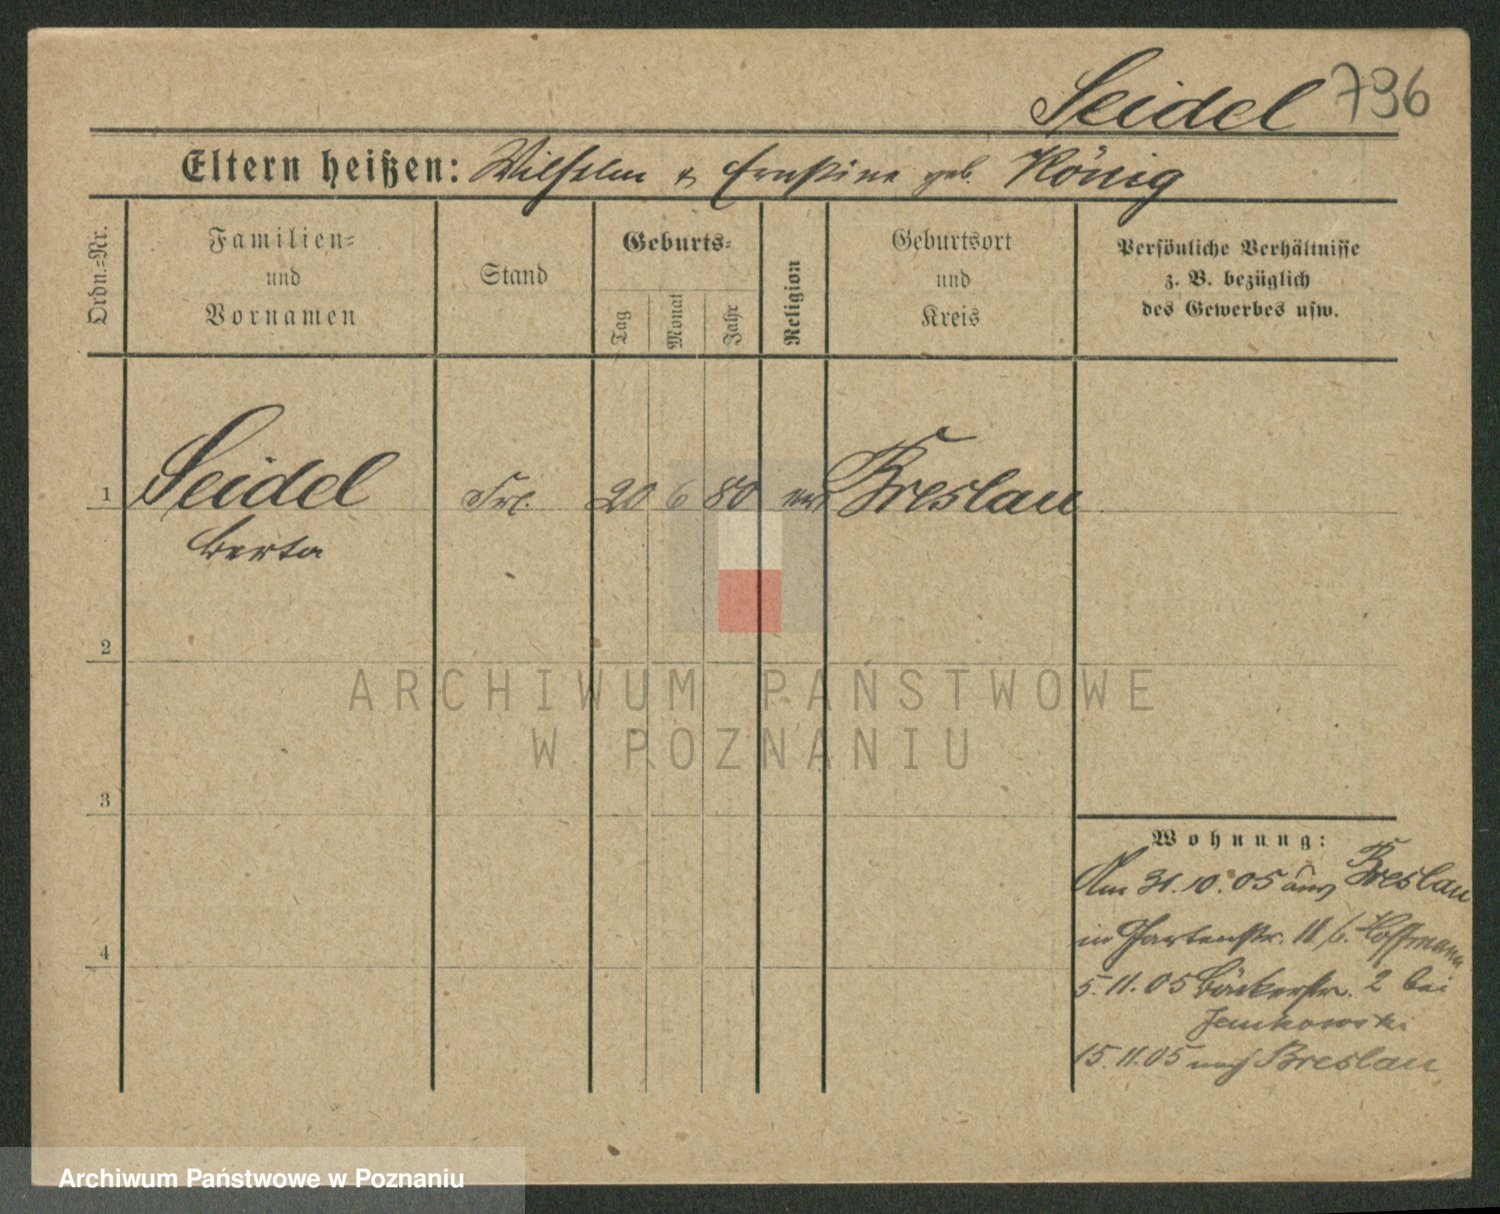 Seidel 796
Eltern heißen: Wilhelm & Ernstine geb. König
Ordn.-Nr.
Familien-
und
Vornamen
Stand
Geburts-
Tag
Monat
Jahr
Religion
Geburtsort
und
Kreis
Persönliche Verhältnisse
z. B. bezüglich
des Gewerbes usw.
1 Seidel Frl. 20 6 80 Breslau
Berta
2
3
4
Wohnung:
Am 31.10.05 aus Breslau
in Gartenstr. 11 b. Hoffmann
5.11.05 Bäckerstr. 2 bei
Jankowski
15.11.05 nach Breslau
ARCHIWUM PAŃSTWOWE
W POZNANIU
Archiwum Państwowe w Poznaniu